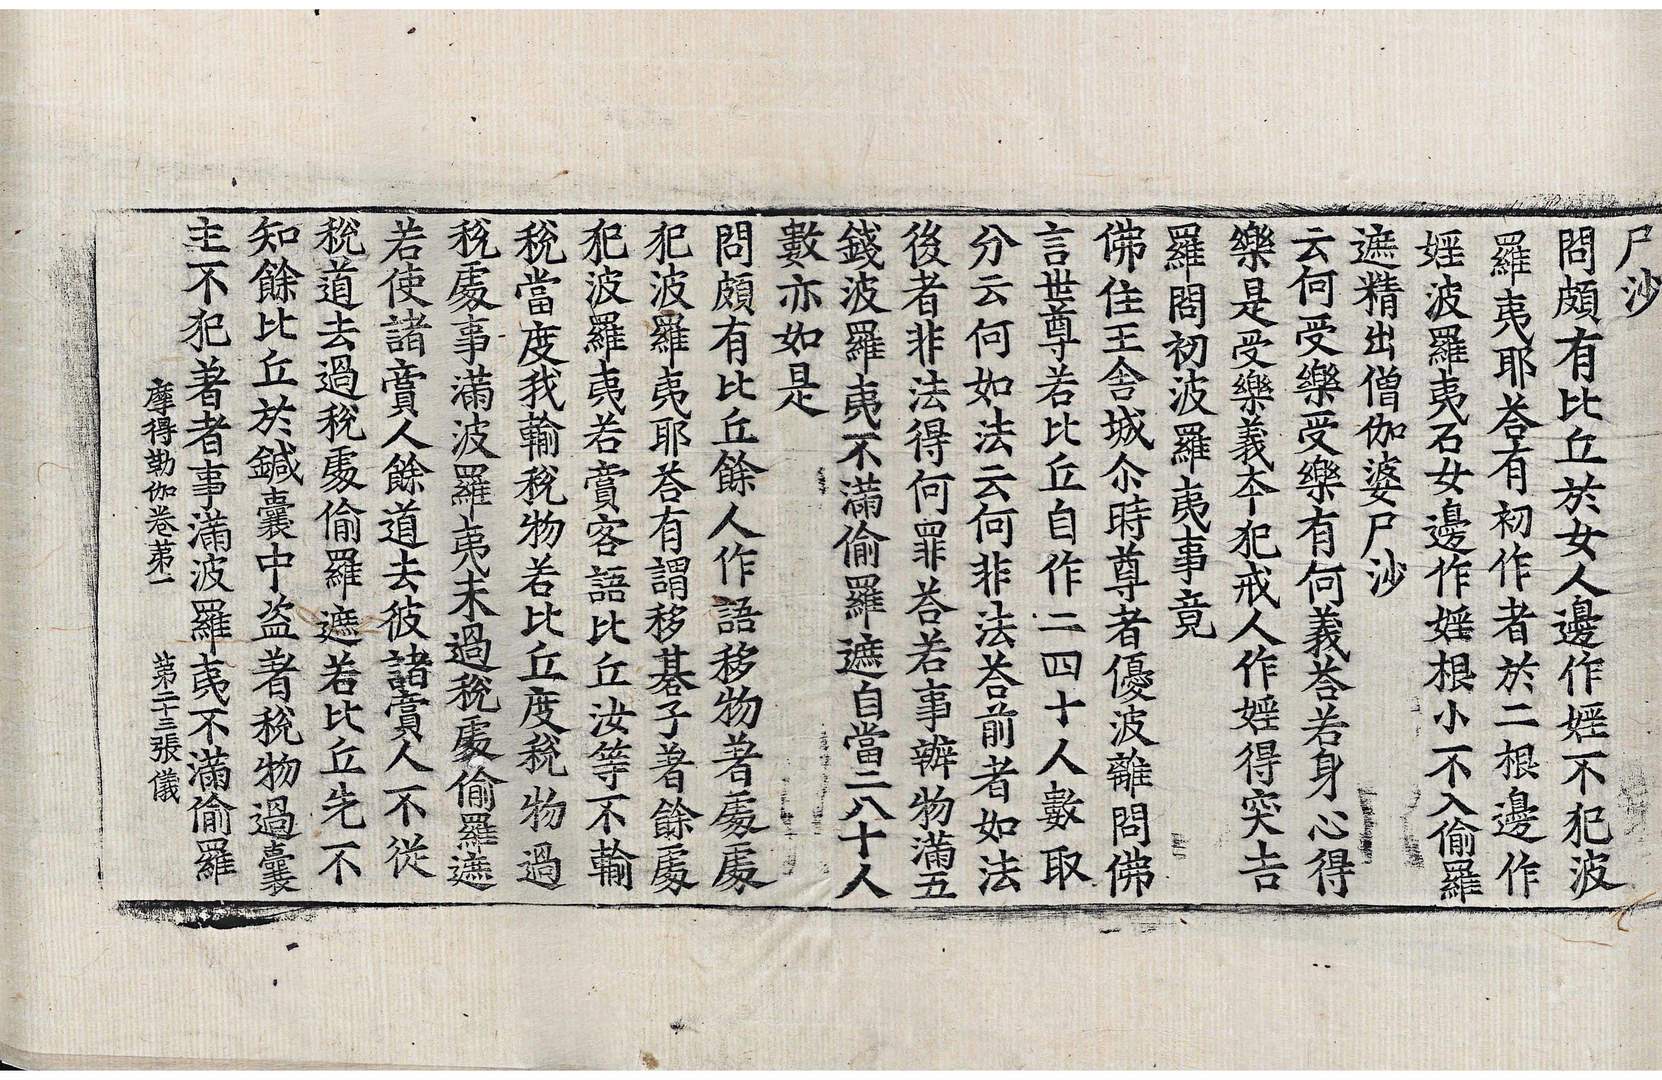 尸沙
問頗有比丘於女人邊作婬不犯波
羅夷耶荅有初作者於二根邊作
婬波羅夷石女邊作婬根小不入偷羅
遮精出僧伽婆尸沙
云何受樂受樂有何義荅若身心得
樂是受樂義夲犯戒人作婬得突吉
羅問初波羅夷事竟
佛住王舍城尒時尊者優波離問佛
言世尊若比丘自作二四十人數取
分云何如法云何非法荅前者如法
後者非法得何罪荅若事辦物滿五
錢波羅夷不滿偷羅遮自當二八十人
數亦如是
問頗有比丘餘人作語移物著處處
犯波羅夷耶荅有謂移碁子著餘處
犯波羅夷若賣客語比丘汝等不輸
稅當度我輸稅物若比丘度稅物過
稅處事滿波羅夷未過稅處偷羅遮
若使諸賣人餘道去彼諸賣人不從
稅道去過稅處偷羅遮若比丘先不
知餘比丘於鍼囊中盜著稅物過囊
主不犯著者事滿波羅夷不滿偷羅
摩得勒伽卷第一 第二十三張 儀